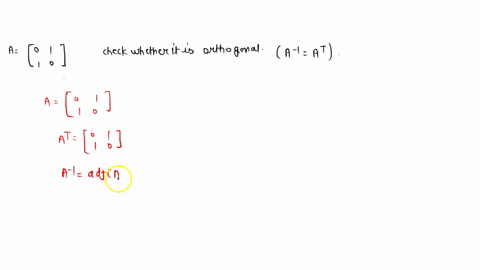 A = [0 1; 1 0] check whether it is orthogonal. (A⁻¹ = Aᵀ).
A = [0 1; 1 0]
Aᵀ = [0 1; 1 0]
A⁻¹ = adj(A